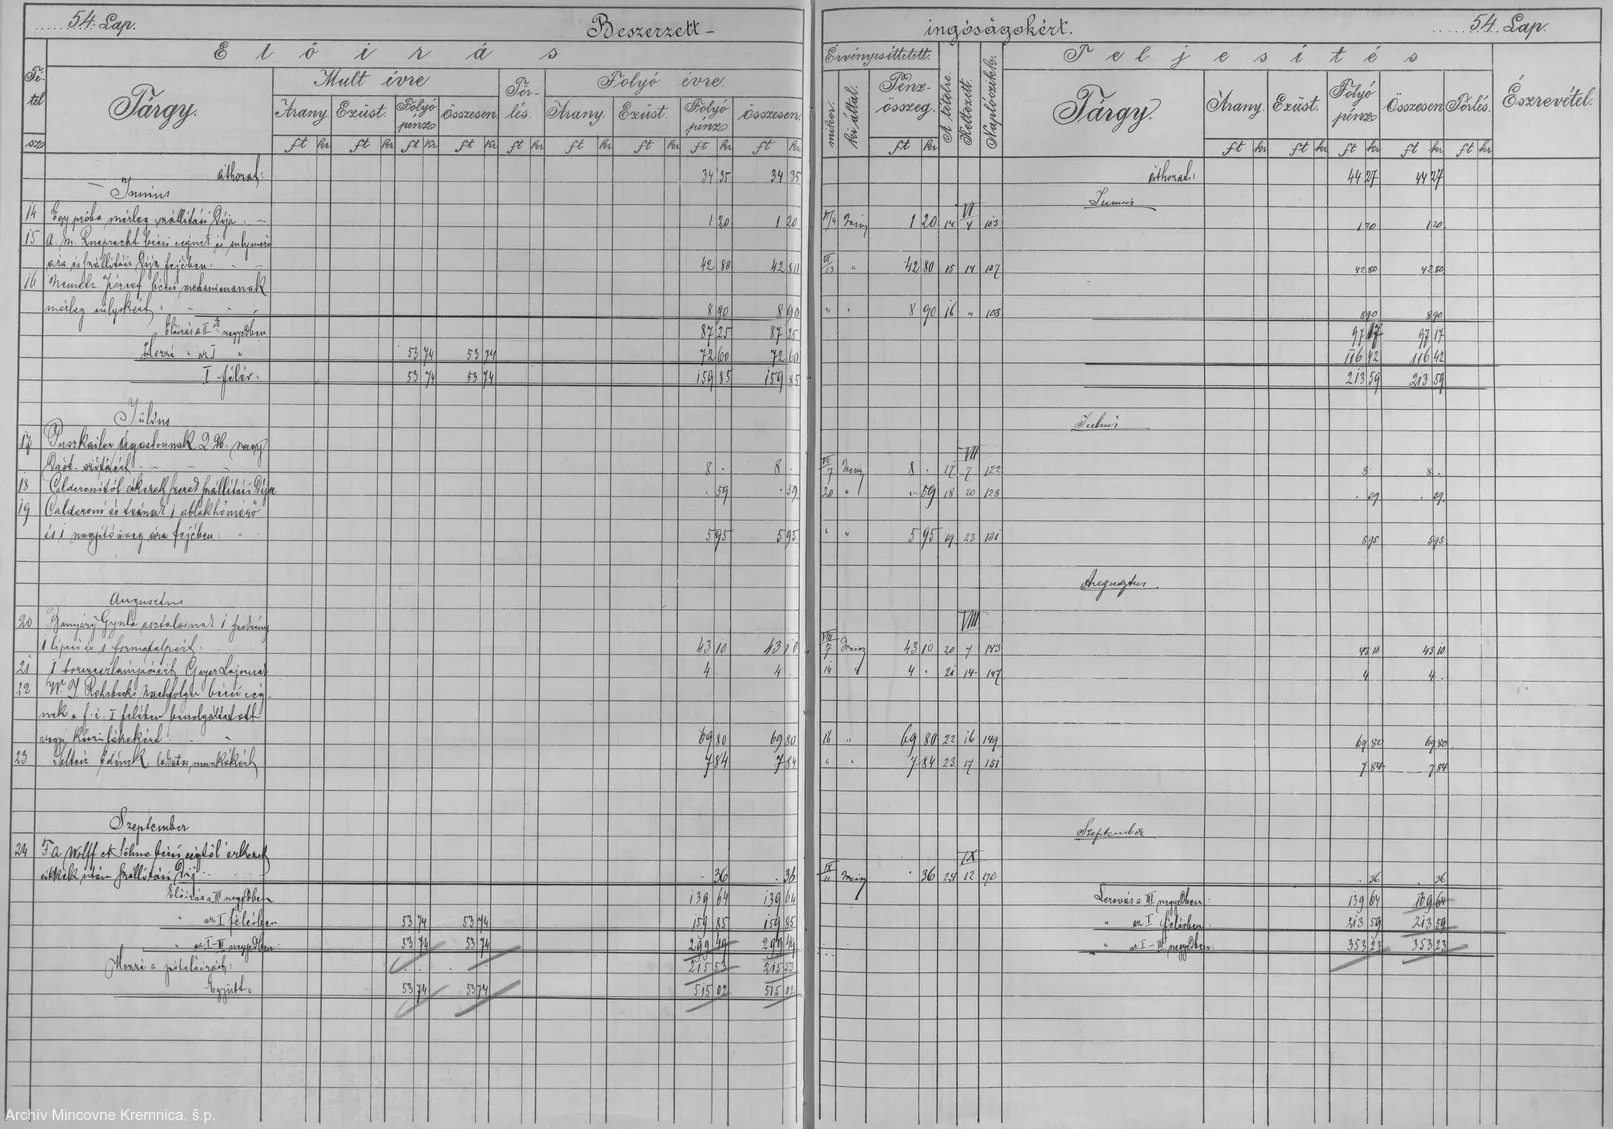 54. Lap.
Beszerzett-
Előirás
Tétel
szá
Tárgy.
Mult évre
Arany. Ezüst. Folyó pénz Összesen
Törlés.
Folyó évre.
Arany. Ezüst. Folyó pénz összesen
ft kr ft kr ft kr ft kr ft kr ft kr ft kr ft kr ft kr
áthozat: 34 35 34 35
Junius
14 Egy próba mérleg szállitási dija. 1 20 1 20
15 A. M. Ruprecht bécsi cégnek
ára és szállitási dija fejében: 42 80 42 80
16 Nemetz József bécsi mechanicusnak
mérleg 8 90 8 90
Előirás a II negyedben 87 25 87 25
Hozzá " az I " 53 74 53 74 72 60 72 60
I félév. 53 74 53 74 159 85 159 85
Július
17 Ágostonnak 2 db. nagy
8 . 8 .
18 Calderonitól érkezett szállitási dija . 59 . 59
19 Calderoni és társnak 1 ablakhőmérő
és 1 nagyitó üveg ára fejében: 5 95 5 95
Augusztus
20 Gyula asztalosnak 1
1 és 1 43 10 43 10
21 1 Geyer Lajosnak 4 . 4 .
22 W. J. Rohrbecks nachfolger bécsi cég-
nek a f. é. I felében
vegyi készülékekért 69 80 69 80
23 munkákért 7 84 7 84
Szeptember
24 F. A. Wolff et Söhne bécsi cégtől érkezett
cikkek után szállitási dij . 36 . 36
Előirás a III negyedben 139 64 139 64
" az I félévben 53 74 53 74 159 85 159 85
" az I-III negyedben 53 74 53 74 299 49 299 49
Hozzá a pótelőirást: 215 53 215 53
Együtt: 53 74 53 74 515 02 515 02
ingóságokért.
54. Lap.
Érvényesíttetett.
mikor. ki által. Pénzösszeg. A tételre. Keltezett. Naplószikk.
Teljesités
Tárgy. Arany. Ezüst. Folyó pénz Összesen Törlés. Észrevétel.
ft kr ft kr ft kr ft kr ft kr ft kr
áthozat: 44 27 44 27
Junius
VI
1 20 14 4 103 1 20 1 20
42 80 15 14 107 42 80 42 80
" " 8 90 16 " 108 8 90 8 90
97 17 97 17
116 42 116 42
213 59 213 59
Julius
VII
8 . 17 7 122 8 8 .
20 " . 59 18 20 128 . 59 . 59
" " 5 95 19 23 131 5 95 5 95
Augusztus
VIII
43 10 20 7 143 43 10 43 10
14 " 4 . 21 14 147 4 4 .
16 " 69 80 22 16 149 69 80 69 80
" " 7 84 23 17 151 7 84 7 84
Szeptember
IX
. 36 24 12 170 . 36 . 36
Lerovás a III negyedben: 139 64 139 64
" az I félévben: 213 59 213 59
" az I-III negyedben: 353 23 353 23
Archív Mincovne Kremnica, š.p.